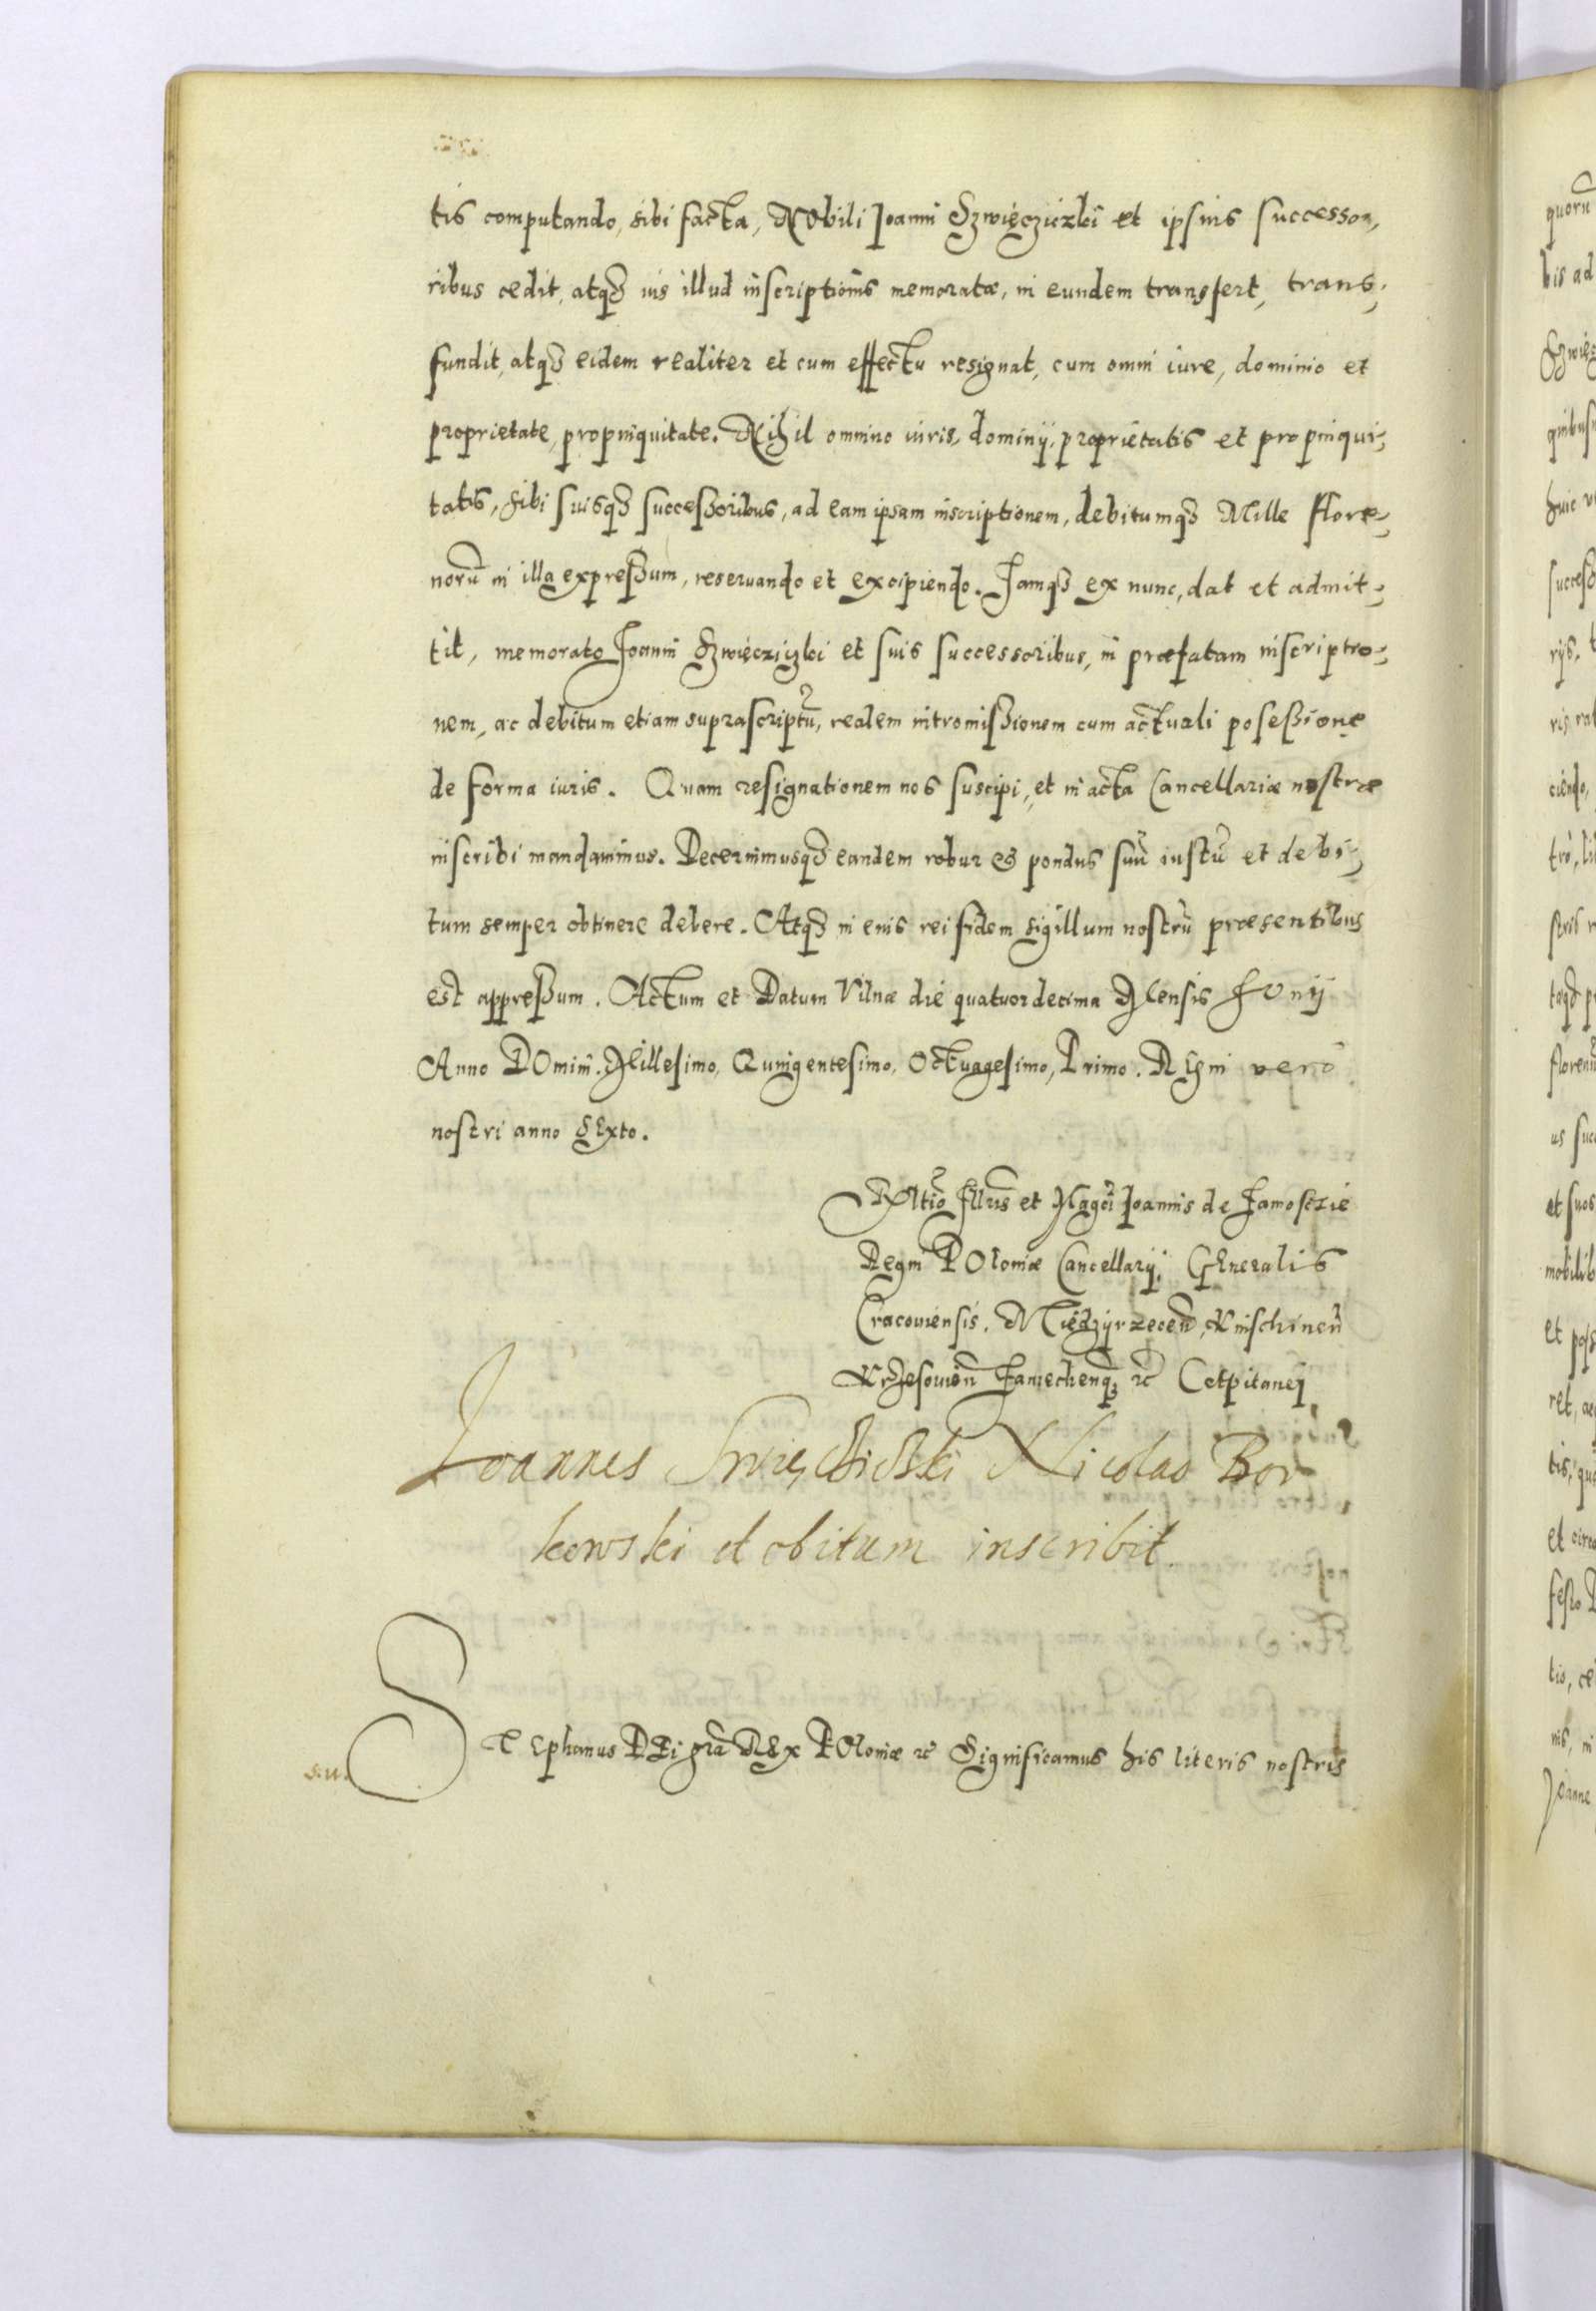 tis computando, sibi facta, Nobili Joanni Szwięcziczki et ipsius successo,
ribus cedit, atqz ius illud inscriptionis memoratæ, in eundem transfert, trans,
fundit, atqz eidem realiter et cum effectu resignat, cum omni iure, dominio et
proprietate, propinquitate. Nihil omnino iuris, dominij, proprietatis et propinqui,
tatis, sibi suisqz successoribus, ad eam ipsam inscriptionem, debitumqz Mille flore,
norū in illa expressum, reservando et excipiendo. Jamqz ex nunc, dat et admit,
tit, memorato Joanni Szwięcziczki et suis successoribus, in præfatam inscriptio,
nem, ac debitum etiam suprascriptū, realem intromissionem cum actuali posessione
de forma iuris. Quam resignationem nos suscipi, et in acta Cancellariæ nostræ
inscribi mandavimus. Decernimusqz eandem robur et pondus suū iustū et debi,
tum semper obtinere debere. Atqz in eius rei fidem sigillum nostrū præsentibus
est appressum. Actum et Datum Vilnæ die quatuordecima Mensis Junij
Anno Domini Millesimo, Quingentesimo, Octuagesimo, Primo. Regni vero
nostri anno Sexto.
Rltio Illris et Magci Joannis de Zamoscie
Regni Poloniæ Cancellarij, Generalis
Cracoviensis, Międzyrzecen, Knischinen
Zamechenqz rc Capitanei
Joannes Swięcziczki Nicolao Bor
kowski debitum inscribit.
Stephanus Dei gra Rex Poloniæ rc Significamus his literis nostris